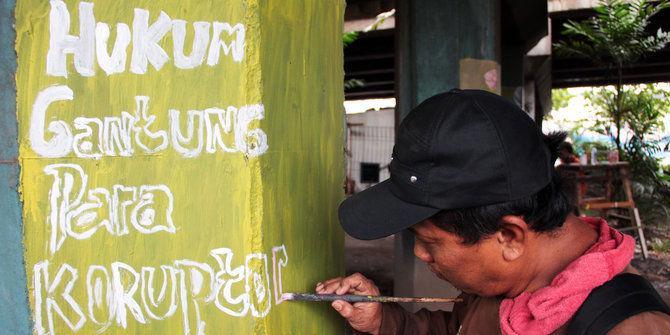 Hukum
Gantung
Para
KORUPtor